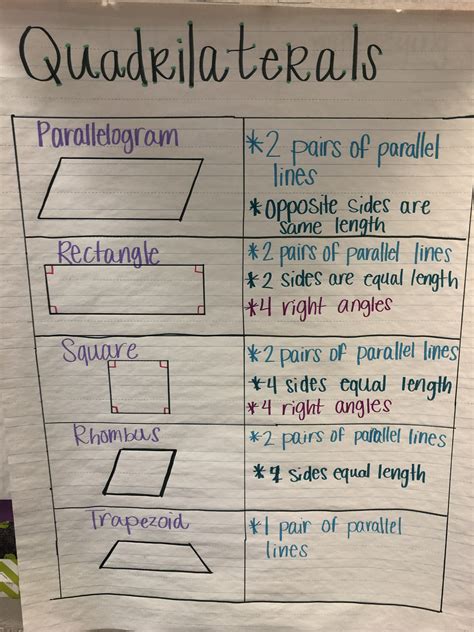 Quadrilaterals
Parallelogram
*2 pairs of parallel
lines
*opposite sides are
same length
Rectangle
*2 pairs of parallel lines
*2 sides are equal length
*4 right angles
Square
*2 pairs of parallel lines
*4 sides equal length
*4 right angles
Rhombus
*2 pairs of parallel lines
*4 sides equal length
Trapezoid
*1 pair of parallel
lines